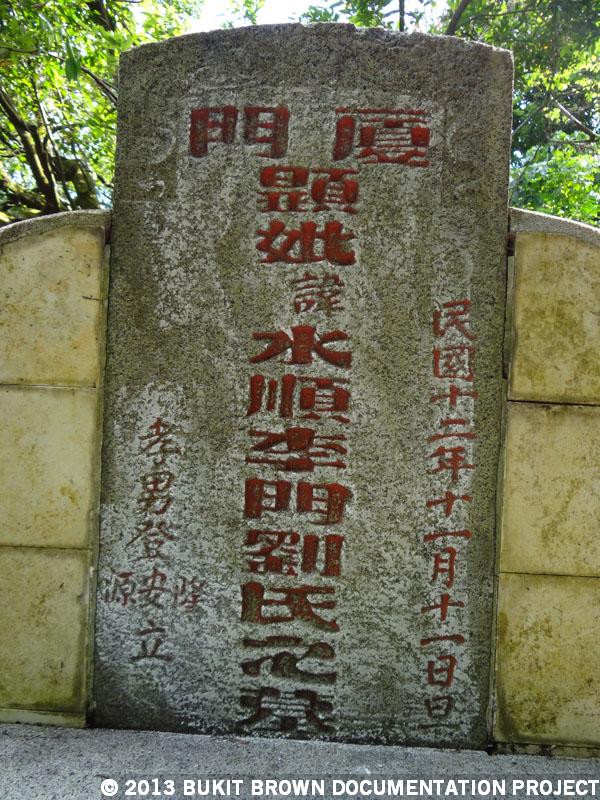 廈門
民國十二年十一月十一日旦
顕妣諱水順李門劉氏之
孝男登隆安源立
© 2013 BUKIT BROWN DOCUMENTATION PROJECT